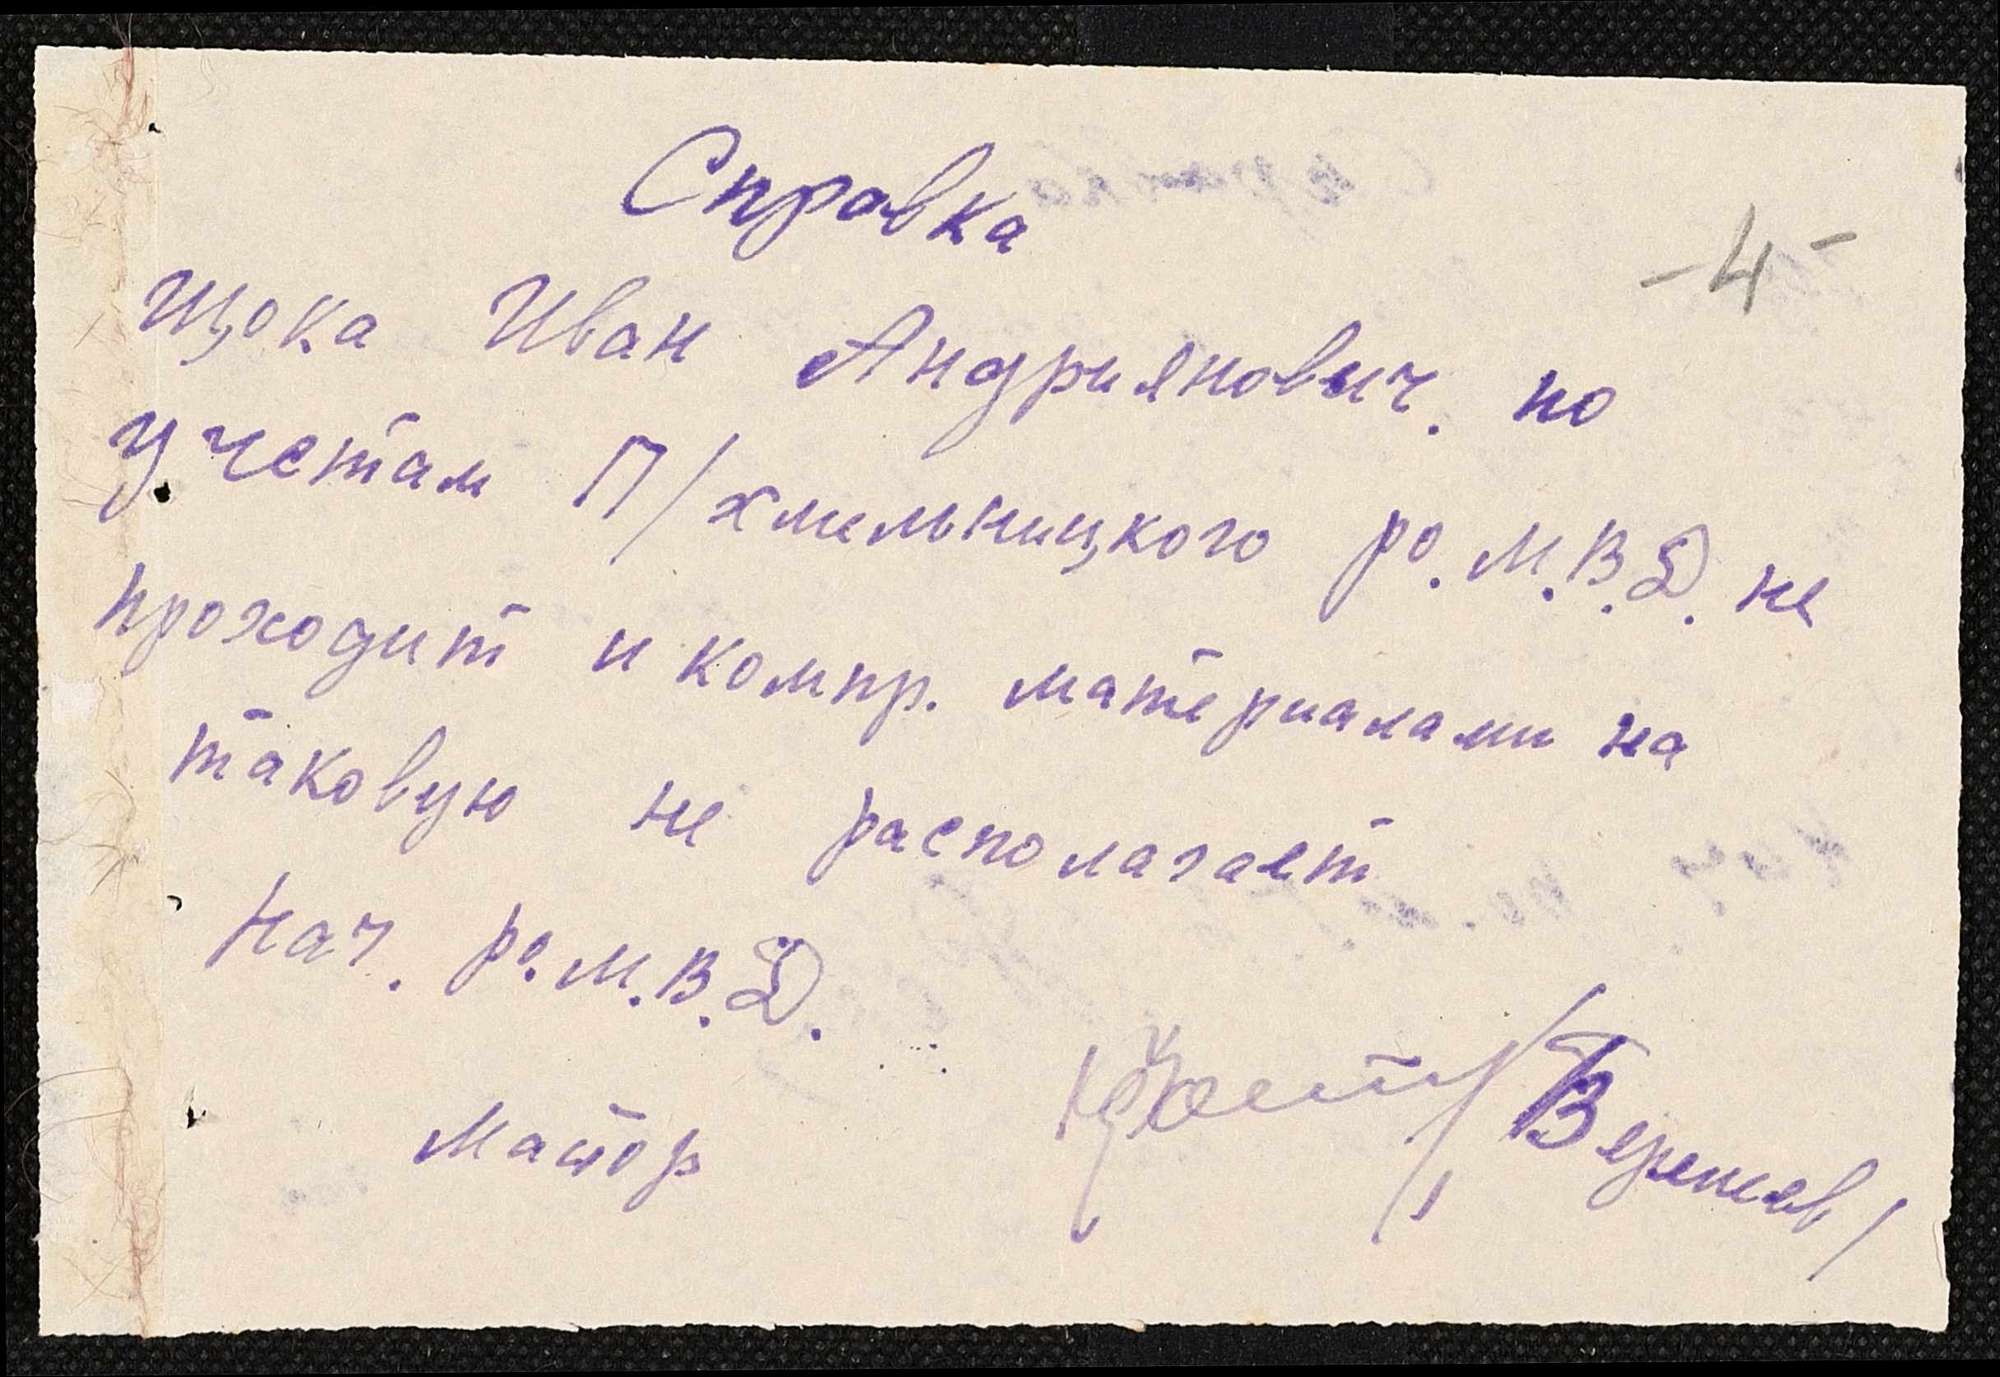 Справка
-4-
Щока Иван Андриянович. по
учетам П/хмельницкого ро. М.В.Д. не
проходит и компр. материалами на
таковую не располагает
Нач. ро. М.В.Д.
Майор